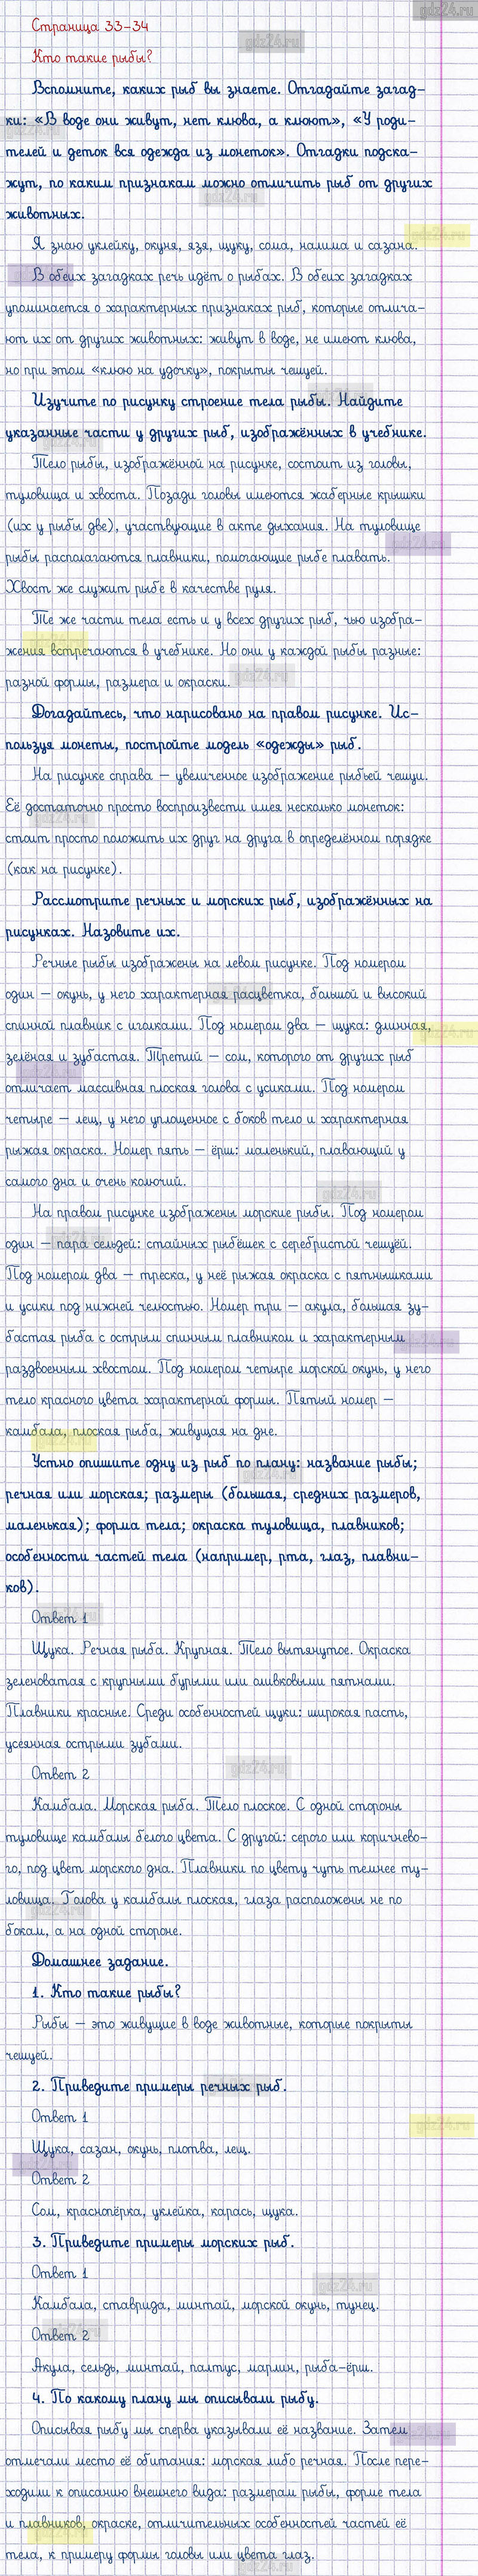 gdz24.ru
Страница 33-34
gdz24.ru
Кто такие рыбы?
Вспомните, каких рыб вы знаете. Отгадайте загад-
ки: «В воде они живут, нет клюва, а клюют», «У роди-
телей и деток вся одежда из монеток». Отгадки подска-
жут, по каким признакам можно отличить рыб от других
животных.
Я знаю уклейку, окуня, язя, щуку, сома, налима и сазана.
В обеих загадках речь идёт о рыбах. В обеих загадках
упоминается о характерных признаках рыб, которые отлича-
ют их от других животных: живут в воде, не имеют клюва,
но при этом «клюю на удочку», покрыты чешуей.
Изучите по рисунку строение тела рыбы. Найдите
указанные части у других рыб, изображённых в учебнике.
Тело рыбы, изображённой на рисунке, состоит из головы,
туловища и хвоста. Позади головы имеются жаберные крышки
(их у рыбы две), участвующие в акте дыхания. На туловище
рыбы располагаются плавники, помогающие рыбе плавать.
Хвост же служит рыбе в качестве руля.
Те же части тела есть и у всех других рыб, чью изобра-
жения встречаются в учебнике. Но они у каждой рыбы разные:
разной формы, размера и окраски.
Догадайтесь, что нарисовано на правом рисунке. Ис-
пользуя монеты, постройте модель «одежды» рыб.
На рисунке справа – увеличенное изображение рыбьей чешуи.
Её достаточно просто воспроизвести имея несколько монеток:
стоит просто положить их друг на друга в определённом порядке
(как на рисунке).
Рассмотрите речных и морских рыб, изображённых на
рисунках. Назовите их.
Речные рыбы изображены на левом рисунке. Под номером
один – окунь, у него характерная расцветка, большой и высокий
спинной плавник с иголками. Под номером два – щука: длинная,
зелёная и зубастая. Третий – сом, которого от других рыб
отличает массивная плоская голова с усиками. Под номером
четыре – лещ, у него уплощенное с боков тело и характерная
рыжая окраска. Номер пять – ёрш: маленький, плавающий у
самого дна и очень колючий.
На правом рисунке изображены морские рыбы. Под номером
один – пара сельдей: стайных рыбёшек с серебристой чешуёй.
Под номером два – треска, у неё рыжая окраска с пятнышками
и усики под нижней челюстью. Номер три – акула, большая зу-
бастая рыба с острым спинным плавником и характерным
раздвоенным хвостом. Под номером четыре морской окунь, у него
тело красного цвета характерной формы. Пятый номер –
камбала, плоская рыба, живущая на дне.
Устно опишите одну из рыб по плану: название рыбы;
речная или морская; размеры (большая, средних размеров,
маленькая); форма тела; окраска туловища, плавников;
особенности частей тела (например, рта, глаз, плавни-
ков).
Ответ 1
Щука. Речная рыба. Крупная. Тело вытянутое. Окраска
зеленоватая с крупными бурыми или оливковыми пятнами.
Плавники красные. Среди особенностей щуки: широкая пасть,
усеянная острыми зубами.
Ответ 2
Камбала. Морская рыба. Тело плоское. С одной стороны
туловище камбалы белого цвета. С другой: серого или коричнево-
го, под цвет морского дна. Плавники по цвету чуть темнее ту-
ловища. Голова у камбалы плоская, глаза расположены не по
бокам, а на одной стороне.
Домашнее задание.
1. Кто такие рыбы?
Рыбы – это живущие в воде животные, которые покрыты
чешуей.
2. Приведите примеры речных рыб.
Ответ 1
Щука, сазан, окунь, плотва, лещ.
Ответ 2
Сом, краснопёрка, уклейка, карась, щука.
3. Приведите примеры морских рыб.
Ответ 1
Камбала, ставрида, минтай, морской окунь, тунец.
Ответ 2
Акула, сельдь, минтай, палтус, марлин, рыба-ёрш.
4. По какому плану мы описывали рыбу.
Описывая рыбу мы сперва указывали её название. Затем
отмечали место её обитания: морская либо речная. После пере-
ходили к описанию внешнего вида: размерам рыбы, форме тела
и плавников, окраске, отличительных особенностей частей её
тела, к примеру формы головы или цвета глаз.